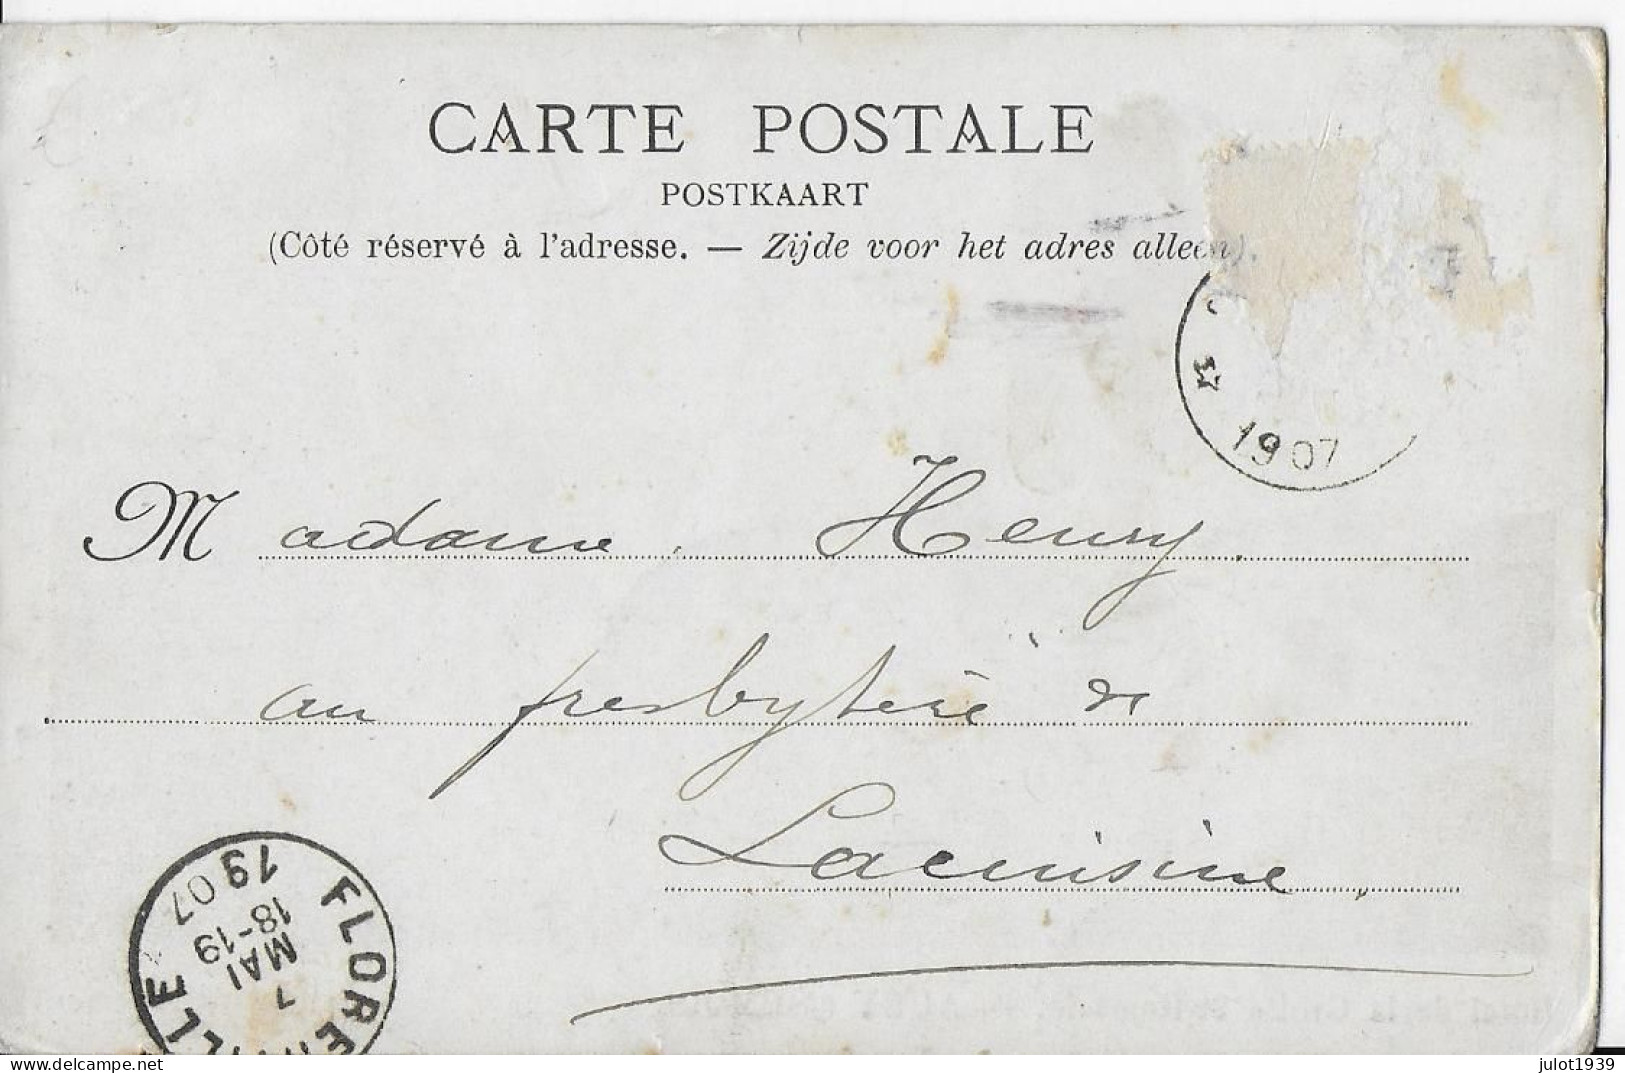 CARTE POSTALE
POSTKAART
(Côté réservé à l'adresse. — Zijde voor het adres alleen).
1907
Madame Henry
au presbytère de
Lacuisine
FLORENVILLE
7
MAI
18-19
1907
julot1939